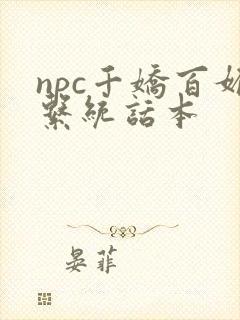 npc千嬌百媚
繫統話本
晏菲